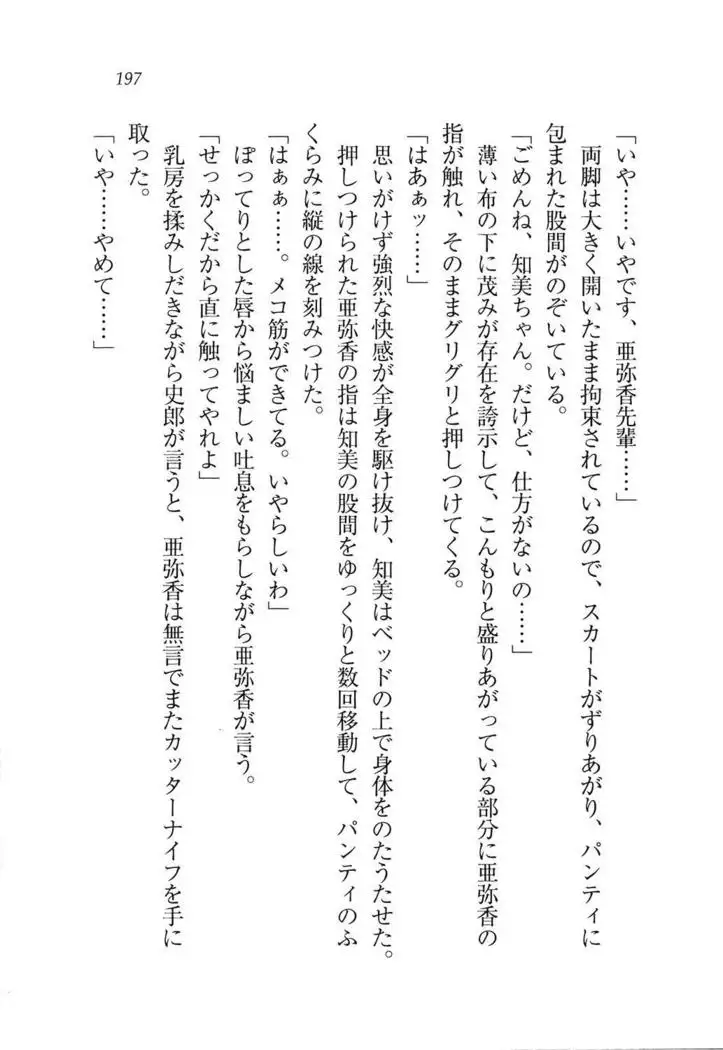 197
「いや……いやです、亜弥香先輩……」
両脚は大きく開いたまま拘束されているので、スカートがずりあがり、パンティに
包まれた股間がのぞいている。
「ごめんね、知美ちゃん。だけど、仕方がないの……」
薄い布の下に茂みが存在を誇示して、こんもりと盛りあがっている部分に亜弥香の
指が触れ、そのままグリグリと押しつけてくる。
「はあぁッ……」
思いがけず強烈な快感が全身を駆け抜け、知美はベッドの上で身体をのたうたせた。
押しつけられた亜弥香の指は知美の股間をゆっくりと数回移動して、パンティのふ
くらみに縦の線を刻みつけた。
「はぁぁ……。メコ筋ができてる。いやらしいわ」
ぽってりとした唇から悩ましい吐息をもらしながら亜弥香が言う。
「せっかくだから直に触ってやれよ」
乳房を揉みしだきながら史郎が言うと、亜弥香は無言でまたカッターナイフを手に
取った。
「いや……やめて……」